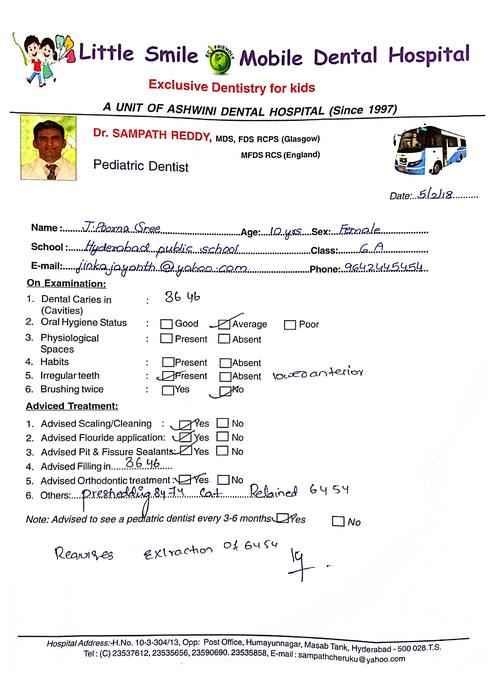 Little Smile Mobile Dental Hospital
Exclusive Dentistry for kids
A UNIT OF ASHWINI DENTAL HOSPITAL (Since 1997)
Dr. SAMPATH REDDY, MDS, FDS RCPS (Glasgow)
MFDS RCS (England)
Pediatric Dentist
Date: 5/2/18
Name: J. Poorna Sree Age: 10 yrs Sex: Female
School: Hyderabad public school Class: 6 A
E-mail: jinkajayanth@yahoo.com Phone: 9642445454
On Examination:
1. Dental Caries in : 36 46
(Cavities)
2. Oral Hygiene Status : Good Average Poor
3. Physiological : Present Absent
Spaces
4. Habits : Present Absent
5. Irregular teeth : Present Absent lower anterior
6. Brushing twice : Yes No
Adviced Treatment:
1. Advised Scaling/Cleaning : Yes No
2. Advised Flouride application: Yes No
3. Advised Pit & Fissure Sealants: Yes No
4. Advised Filling in 36 46
5. Advised Orthodontic treatment: Yes No
6. Others: preshedding 84 74 Retained 64 54
Note: Advised to see a pediatric dentist every 3-6 months Yes No
Requires Extraction of 64 54
Hospital Address:-H.No. 10-3-304/13, Opp: Post Office, Humayunnagar, Masab Tank, Hyderabad - 500 028.T.S.
Tel : (C) 23537612, 23535656, 23590690. 23535858, E-mail : sampathcheruku@yahoo.com